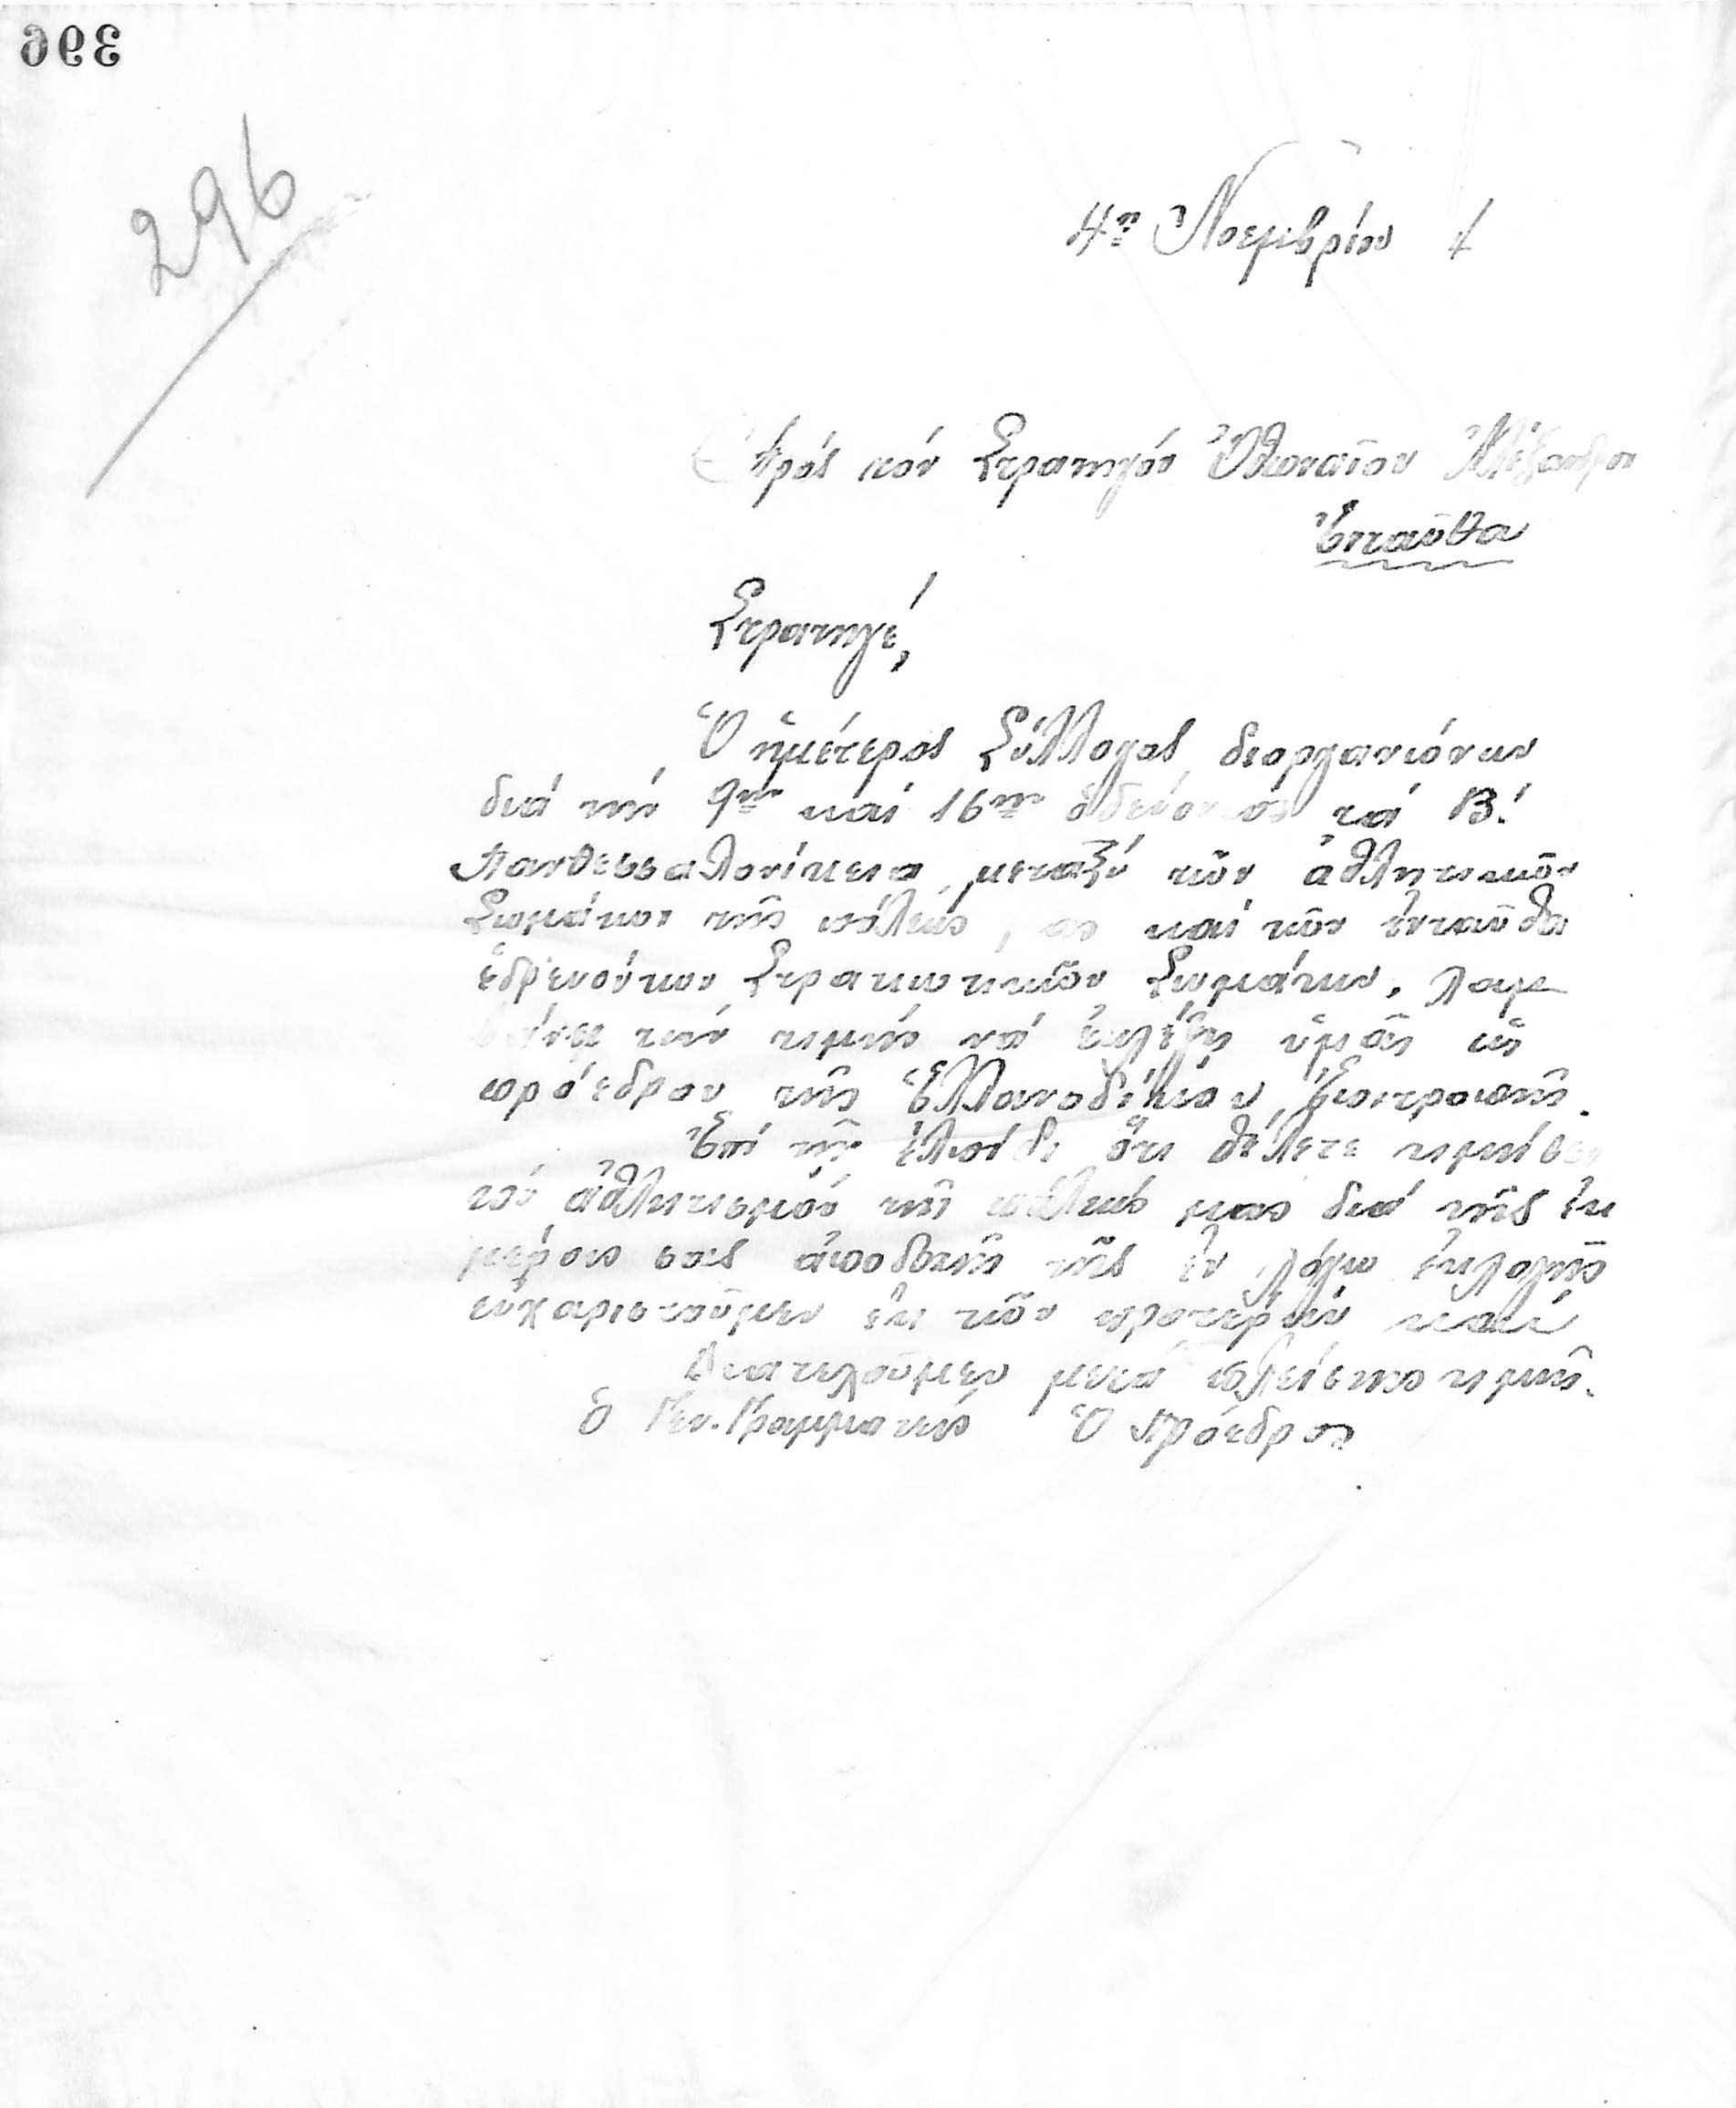 396
296
4η Νοεμβρίου 4
Πρός τόν Στρατηγόν Ὀθωναῖον Ἀλέξανδρον
Ἐνταῦθα
Στρατηγέ,
Ὁ ἡμέτερος Σύλλογος διοργανώνων
διά τήν 9ην καί 16ην ὁδεύοντος τά Β!
Πανθεσσαλονίκεια μεταξύ τῶν ἀθλητικῶν
Σωμάτων τῆς πόλεως, ὡς καί τῶν ἐνταῦθα
ἑδρευόντων Στρατιωτικῶν Σωμάτων, λαμ
βάνει τήν τιμήν νά ἐκλέξῃ ὑμᾶς ὡς
πρόεδρον τῆς Ἑλλανοδίκου Ἐπιτροπῆς.
Ἐπί τῇ ἐλπίδι ὅτι θέλετε τιμήσει
τόν ἀθλητισμόν τῆς πόλεώς μας διά τῆς ἐκ
μέρους σας ἀποδοχῆς τῆς ἐν λόγῳ ἐκλογῆς
εὐχαριστοῦμεν ἐκ τῶν προτέρων καί
Διατελοῦμεν μετά πλείστης τιμῆς.
Ὁ Γεν. Γραμματεύς Ὁ Πρόεδρος